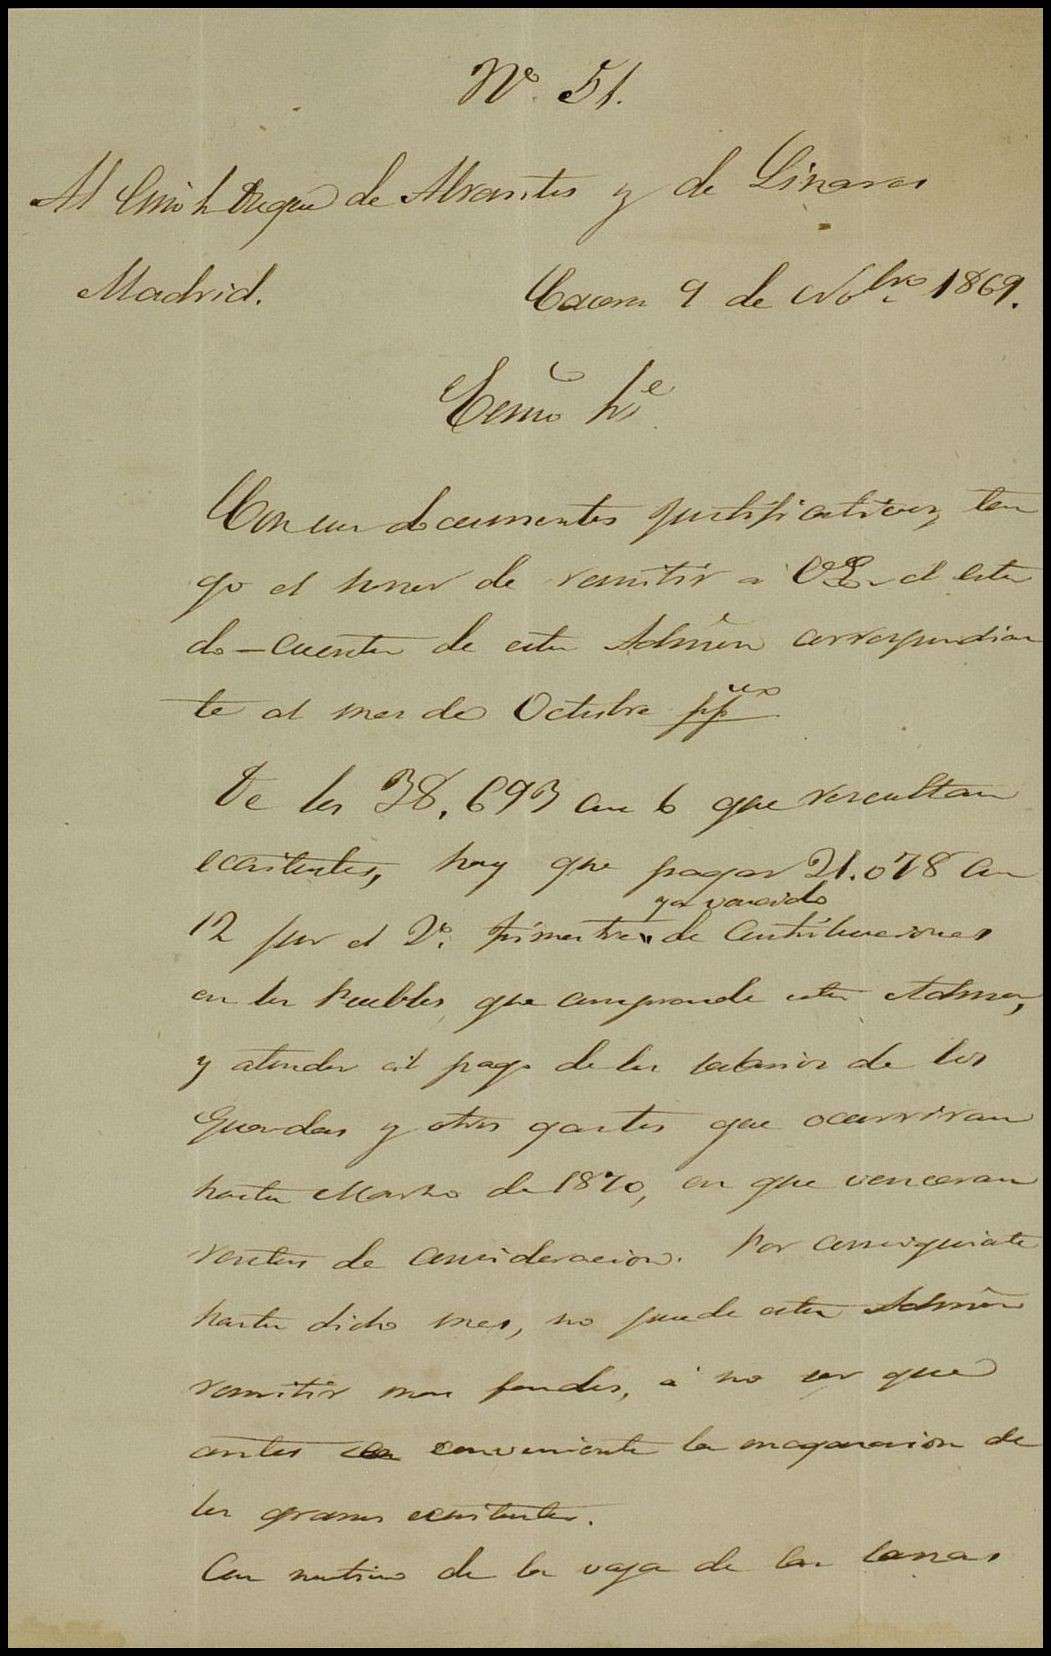 Nº. 51.
Al Exmo Sr Duque de Abrantes y de Linares
Madrid. Caceres 9 de Nobre 1869.
Exmo Sr
Con sus documentos justificativos, ten
go el honor de remitir a V.E. el esta
do-cuenta de esta Admón correspondien
te al mes de Octubre ppdo
De los 38.693 con 6 que resultan
ecsistentes, hay que pagar 21.078 con
ya vencido
12 por el 2º. trimestre de Contribuciones
en los Pueblos, que comprende esta Admon,
y atender al pago de los salarios de los
Guardas y otros gastos que ocurriran
hasta Marzo de 1870, en que venceran
rentas de consideracion. Por consiguiente
hasta dicho mes, no puede esta Admón
remitir mas fondos, a no ser que
antes sea conveniente la enagenacion de
los granos ecsistentes.
Con motivo de la vaja de las lanas